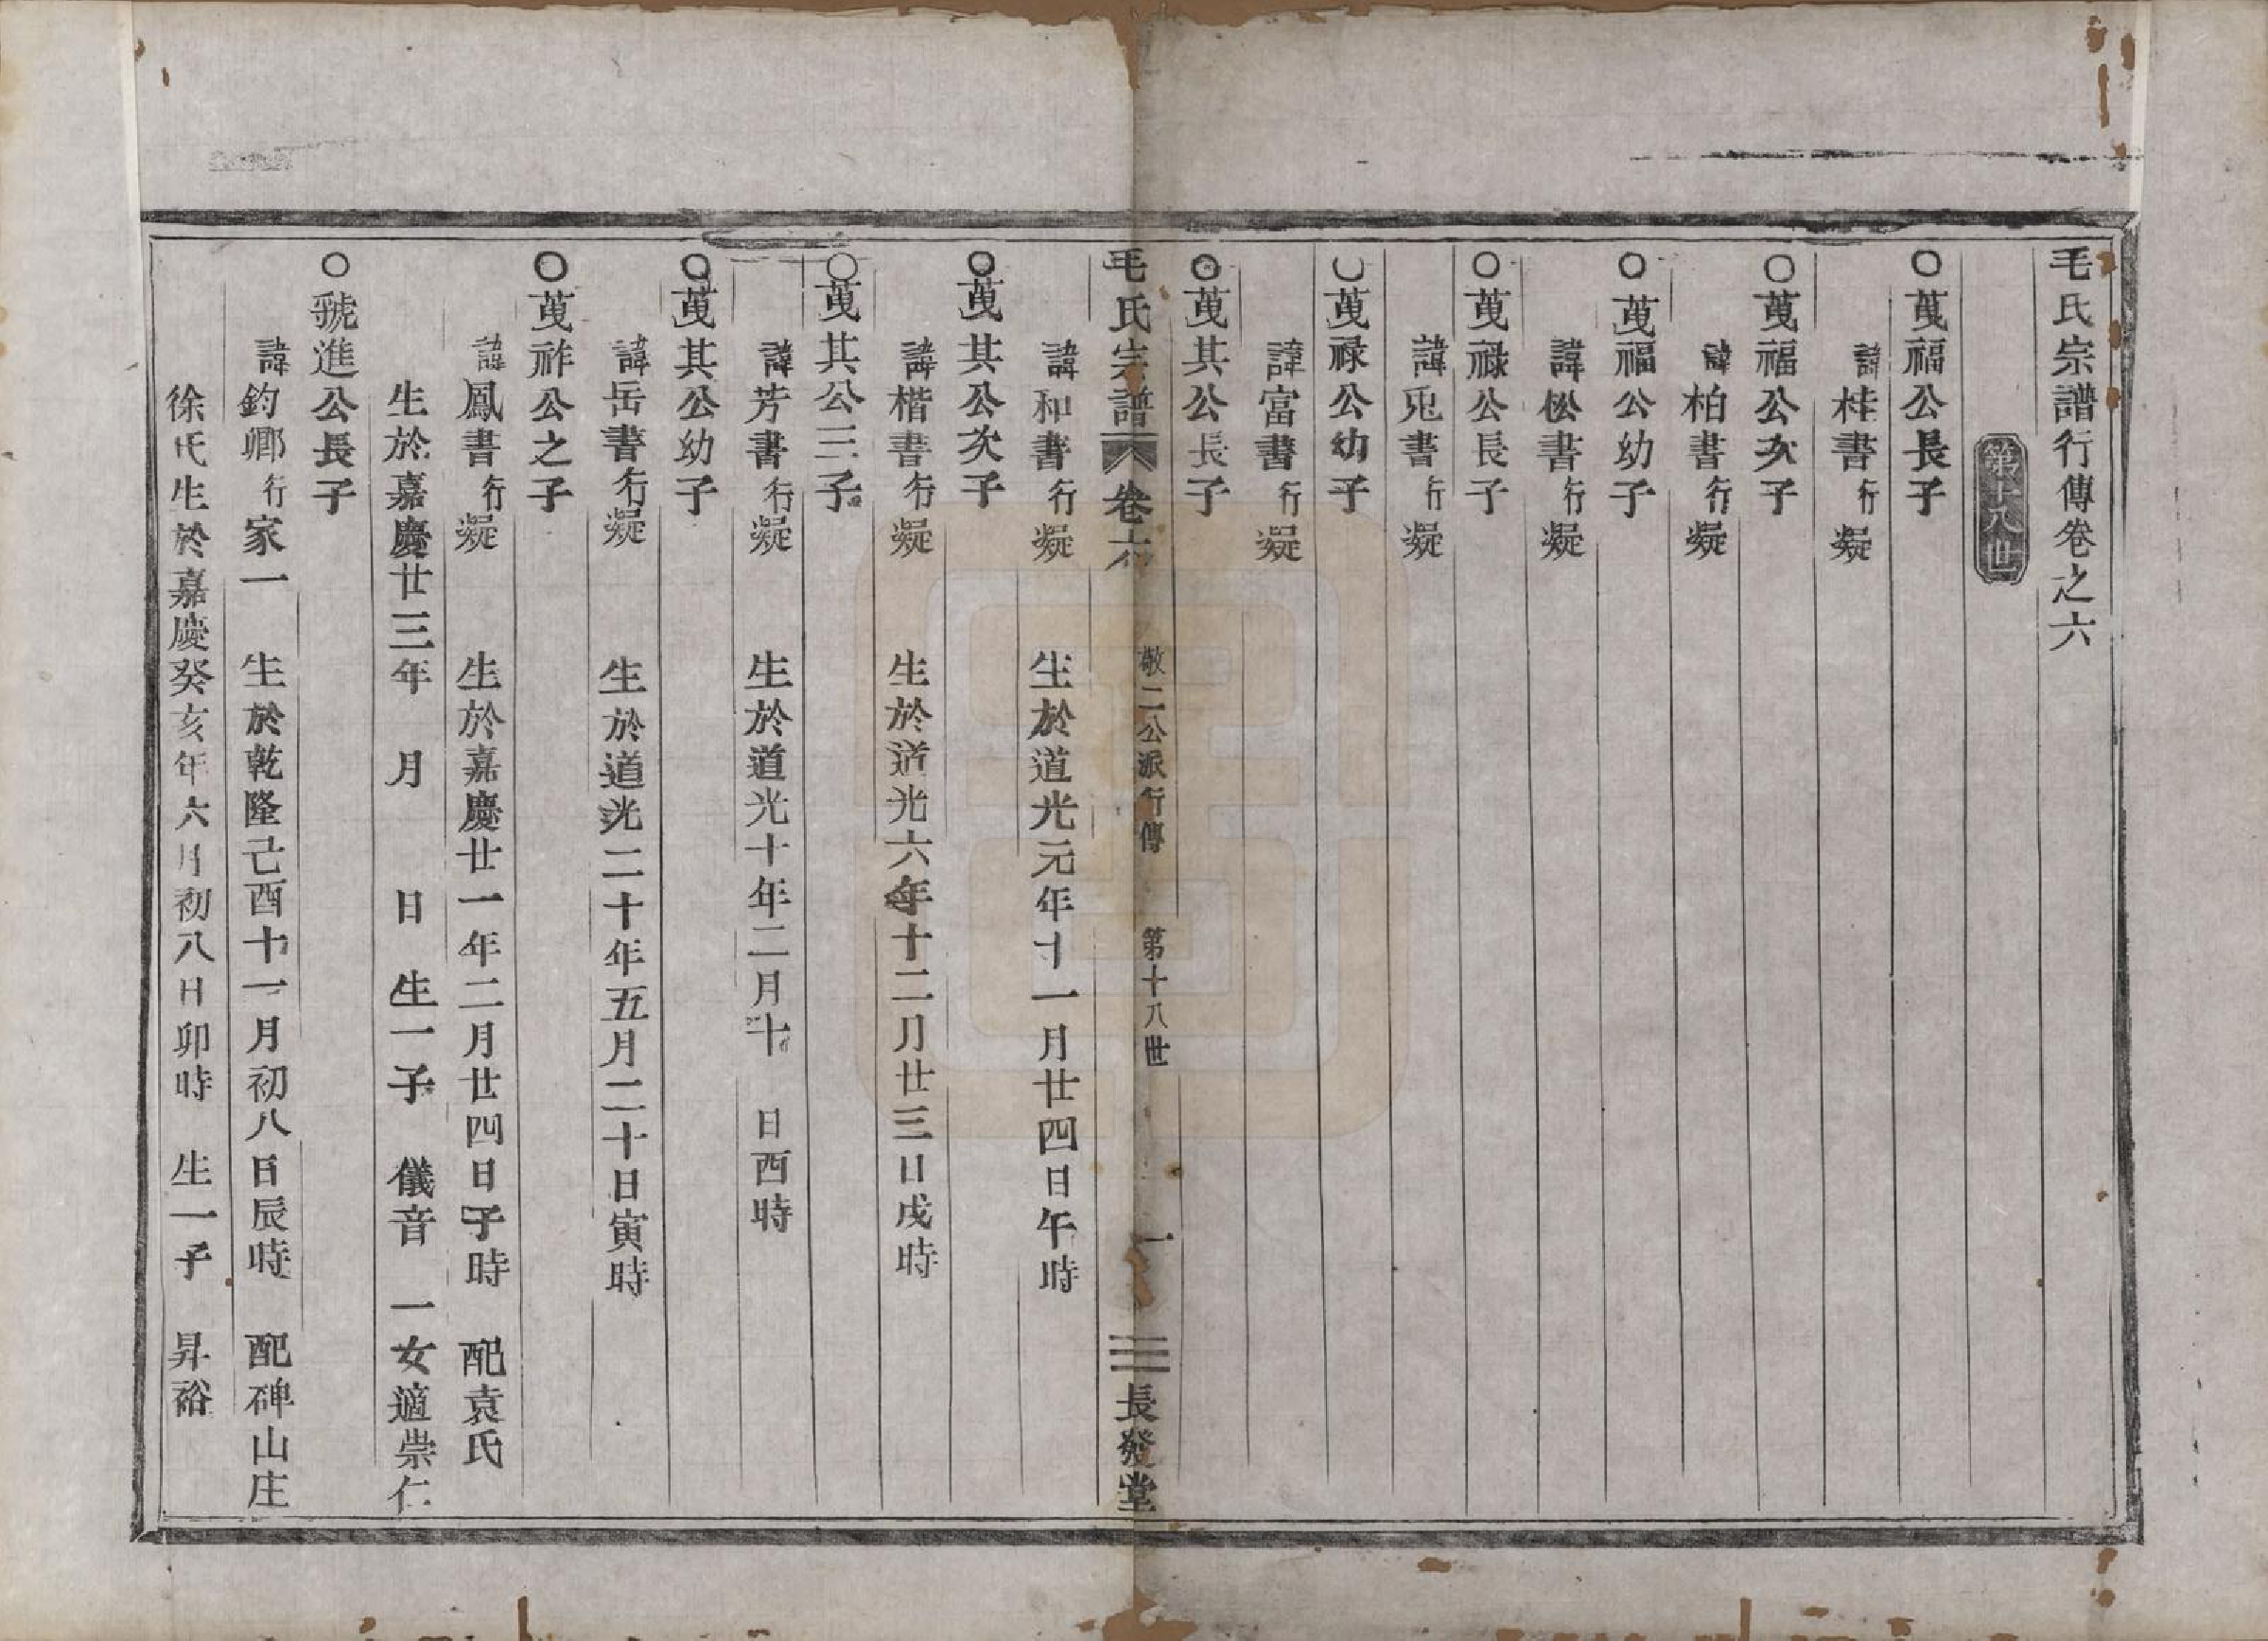 毛氏宗譜行傳卷之六
第十八世
○萬福公長子
諱桂書行凝
○萬福公次子
諱柏書行凝
○萬福公幼子
諱松書行凝
○萬祿公長子
諱兎書行凝
○萬祿公幼子
諱富書行凝
○萬其公長子
毛氏宗譜 卷六 敬二公派行傳 第十八世 一 長發堂
諱和書行凝 生於道光元年十一月廿四日午時
○萬其公次子
諱楷書行凝 生於道光六年十二月廿三日戌時
○萬其公三子
諱芳書行凝 生於道光十年二月十 日酉時
○萬其公幼子
諱岳書行凝 生於道光二十年五月二十日寅時
○萬祚公之子
諱鳳書行凝 生於嘉慶廿一年二月廿四日子時 配袁氏
生於嘉慶廿三年 月 日 生一子 儀音 一女適崇仁
○號進公長子
諱鈞卿行家一 生於乾隆己酉十一月初八日辰時 配碑山庄
徐氏生於嘉慶癸亥年六月初八日卯時 生一子 昇裕